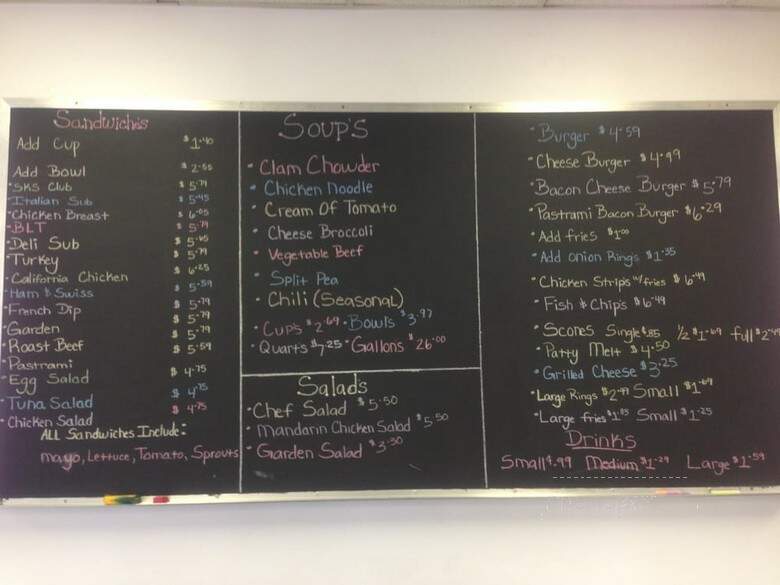 Sandwiches
Add Cup $1.40
Add Bowl $2.50
SKS Club $5.79
Italian Sub $5.45
Chicken Breast $6.05
BLT $5.79
Deli Sub $5.45
Turkey $5.79
California Chicken $6.25
Ham & Swiss $5.59
French Dip $5.79
Garden $5.79
Roast Beef $5.79
Pastrami $5.59
Egg Salad $4.75
Tuna Salad $4.75
Chicken Salad $4.75
ALL Sandwiches Include:
mayo, Lettuce, Tomato, Sprouts
Soup's
Clam Chowder
Chicken Noodle
Cream Of Tomato
Cheese Broccoli
Vegetable Beef
Split Pea
Chili (Seasonal)
Cup's $2.69 Bowl's $3.97
Quarts $7.25 Gallons $26.00
Salads
Chef Salad $5.50
Mandarin Chicken Salad $5.50
Garden Salad $3.50
Burger $4.59
Cheese Burger $4.99
Bacon Cheese Burger $5.79
Pastrami Bacon Burger $6.29
Add fries $1.00
Add onion Ring's $1.35
Chicken Strips w/fries $6.49
Fish & Chip's $6.49
Scones Single $.85 1/2 $1.69 full $2.49
Patty Melt $4.50
Grilled Cheese $3.25
Large Rings $2.99 Small $1.69
Large fries $1.85 Small $1.25
Drinks
Small $.99 Medium $1.29 Large $1.59